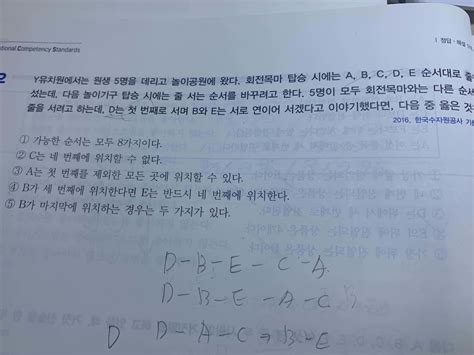 ational Competency Standards
| 정답·해설
2
Y유치원에서는 원생 5명을 데리고 놀이공원에 왔다. 회전목마 탑승 시에는 A, B, C, D, E 순서대로 줄
섰는데, 다음 놀이기구 탑승 시에는 줄 서는 순서를 바꾸려고 한다. 5명이 모두 회전목마와는 다른 순서
줄을 서려고 하는데, D는 첫 번째로 서며 B와 E는 서로 연이어 서겠다고 이야기했다면, 다음 중 옳은 것
2016. 한국수자원공사 기
① 가능한 순서는 모두 8가지이다.
② C는 네 번째에 위치할 수 없다.
③ A는 첫 번째를 제외한 모든 곳에 위치할 수 있다.
④ B가 세 번째에 위치한다면 E는 반드시 네 번째에 위치한다.
⑤ B가 마지막에 위치하는 경우는 두 가지가 있다.
D-B-E-C-A
D-B-E-A-C
D D-A-C B-E